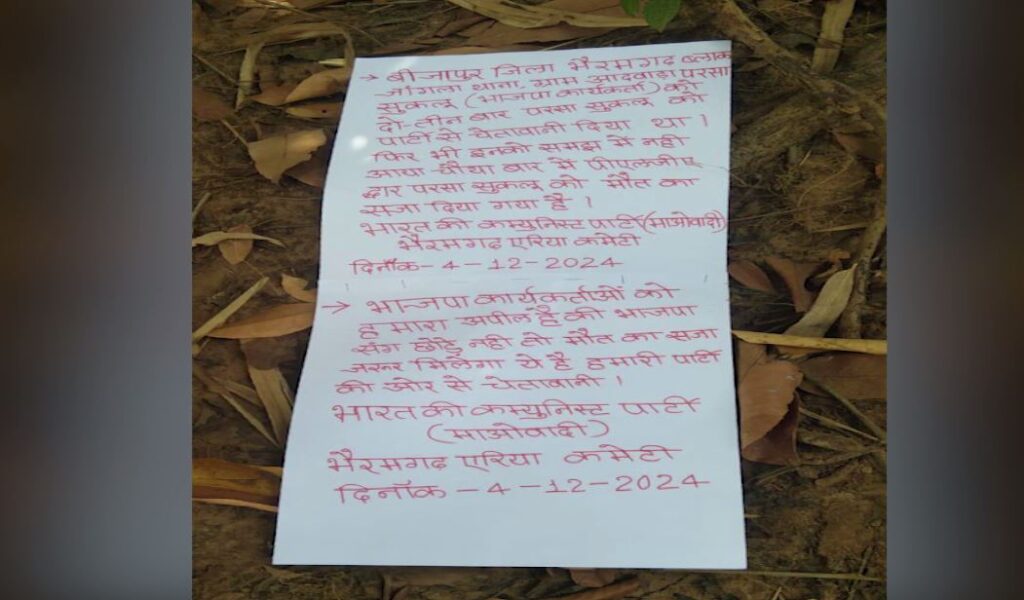 → बीजापुर जिला भैरमगढ ब्लाक
जांगला थाना, ग्राम आदवाड़ा परसा
सुकलू (भाजपा कार्यकर्ता) को
दो-तीन बार परसा सुकलू को
पार्टी से चेतावानी दिया था ।
फिर भी इनको समझ में नही
आया चौथा बार में पीएलजीए
द्वार परसा सुकलू को मौत का
सजा दिया गया है ।
भारत की कम्युनिस्ट पार्टी (माओवादी)
भैरमगढ एरिया कमेटी
दिनाँक - 4 - 12 - 2024
→ भाजपा कार्यकर्ताओं को
हमारा अपील है की भाजपा
संग छोडे नही तो मौत का सजा
जरूर मिलेगा ये है हमारी पार्टी
की ओर से चेतावानी ।
भारत की कम्युनिस्ट पार्टी
(माओवादी)
भैरमगढ एरिया कमेटी
दिनाँक - 4 - 12 - 2024